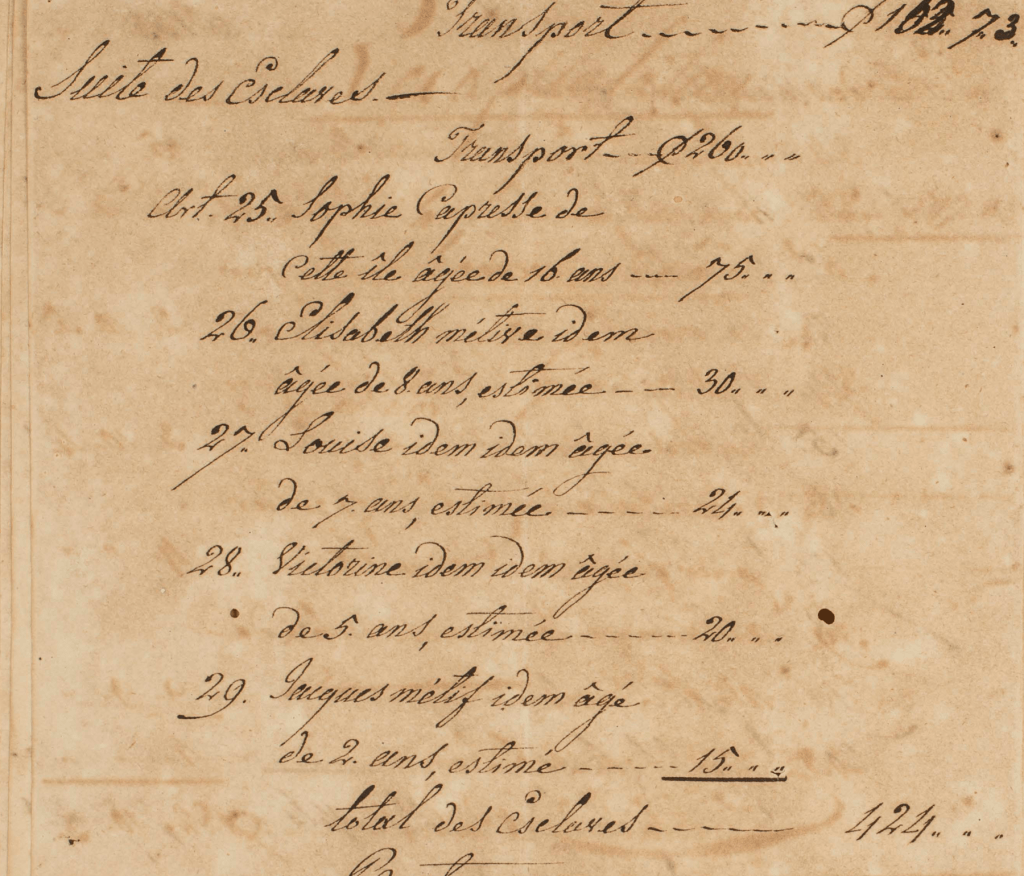 Transport ₱ 162.. 7.. 3.
Suite des Esclaves. —
Transport -- ₱ 260. „ „
Art. 25. Sophie Capresse de
cette île âgée de 16 ans --- 75. „ „
26. Elisabeth métive idem
âgée de 8. ans, estimée --- 30. „ „
27. Louise idem idem âgée
de 7. ans, estimée. ----- 24. „ „
28. Victorine idem idem âgée
de 5. ans, estimée ----- 20. „ „
29. Jacques métif idem âgé
de 2. ans, estimé ----- 15. „ „
total des Esclaves ----- 424. „ „